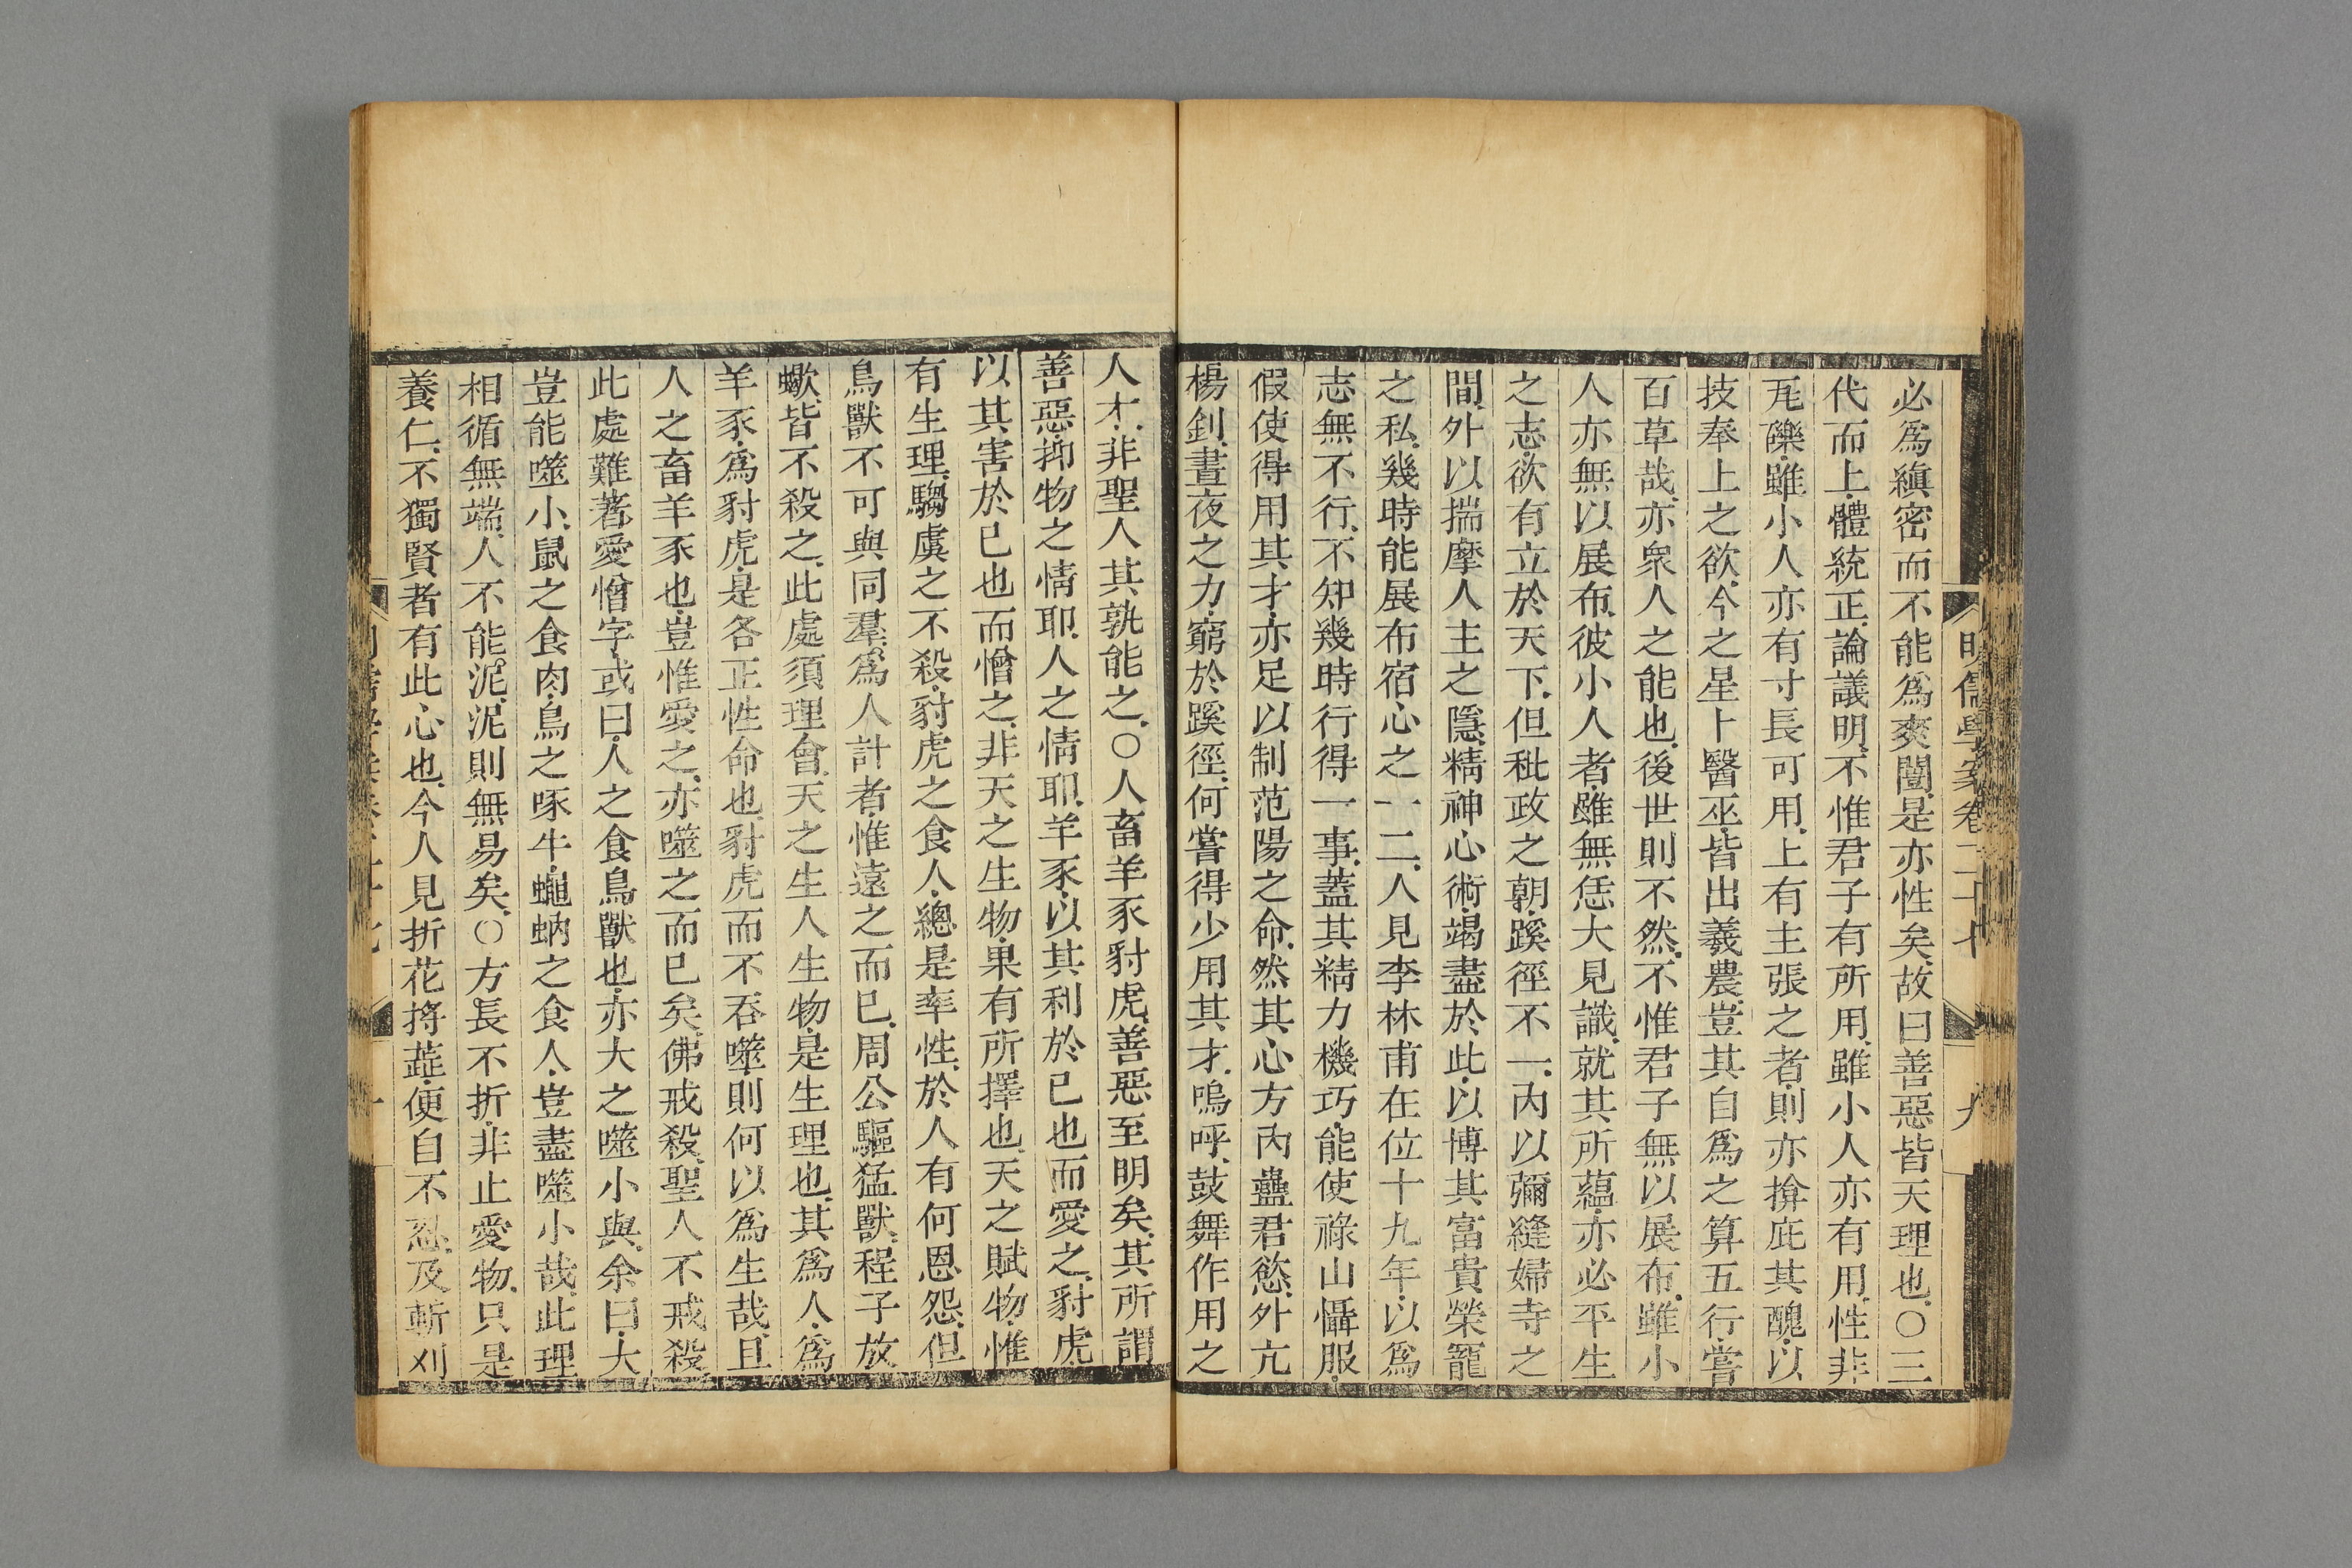 明儒學案卷二十七
九
必爲縝密而不能爲爽闓是亦性矣故曰善惡皆天理也○三
代而上體統正論議明不惟君子有所用雖小人亦有用性非
瓦礫雖小人亦有寸長可用上有主張之者則亦揜庇其醜以
技奉上之欲今之星卜醫巫皆出羲農豈其自爲之算五行嘗
百草哉亦衆人之能也後世則不然不惟君子無以展布雖小
人亦無以展布彼小人者雖無恁大見識就其所蘊亦必平生
之志欲有立於天下但秕政之朝蹊徑不一內以彌縫婦寺之
間外以揣摩人主之隱精神心術竭盡於此以博其富貴榮寵
之私幾時能展布宿心之一二人見李林甫在位十九年以爲
志無不行不知幾時行得一事蓋其精力機巧能使祿山懾服
假使得用其才亦足以制范陽之命然其心方內蠱君慾外亢
楊釗晝夜之力窮於蹊徑何嘗得少用其才嗚呼鼓舞作用之
人才非聖人其孰能之○人畜羊豕豺虎善惡至明矣其所謂
善惡抑物之情耶人之情耶羊豕以其利於已也而愛之豺虎
以其害於已也而憎之非天之生物果有所擇也天之賦物惟
有生理騶虞之不殺豺虎之食人總是率性於人有何恩怨但
鳥獸不可與同羣爲人計者惟遠之而已周公驅猛獸程子放
蠍皆不殺之此處須理會天之生人生物是生理也其爲人爲
羊豕爲豺虎是各正性命也豺虎而不吞噬則何以爲生哉且
人之畜羊豕也豈惟愛之亦噬之而已矣佛戒殺聖人不戒殺
此處難著愛憎字或曰人之食鳥獸也亦大之噬小與余曰大
豈能噬小鼠之食肉鳥之啄牛蠅蚋之食人豈盡噬小哉此理
相循無端人不能泥泥則無易矣○方長不折非止愛物只是
養仁不獨賢者有此心也今人見折花將蕋便自不忍及斬刈